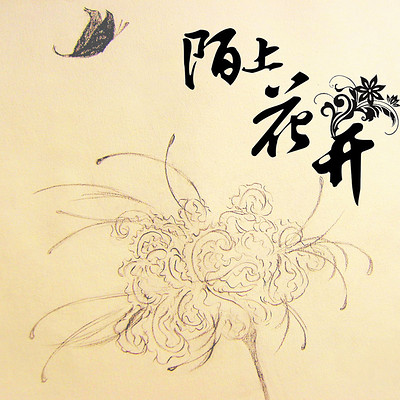 陌上花开